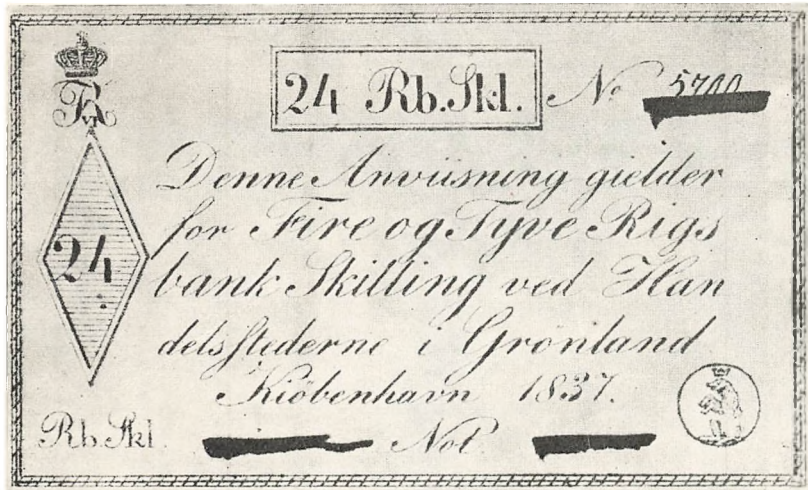 24 Rb.Skl. No. 5700
Denne Anviisning gielder
for Fire og Tyve Rigs
bank Skilling ved Han
delsstederne i Grönland
Kiöbenhavn 1837.
FR
VI
24
Rb.Skl. Not.